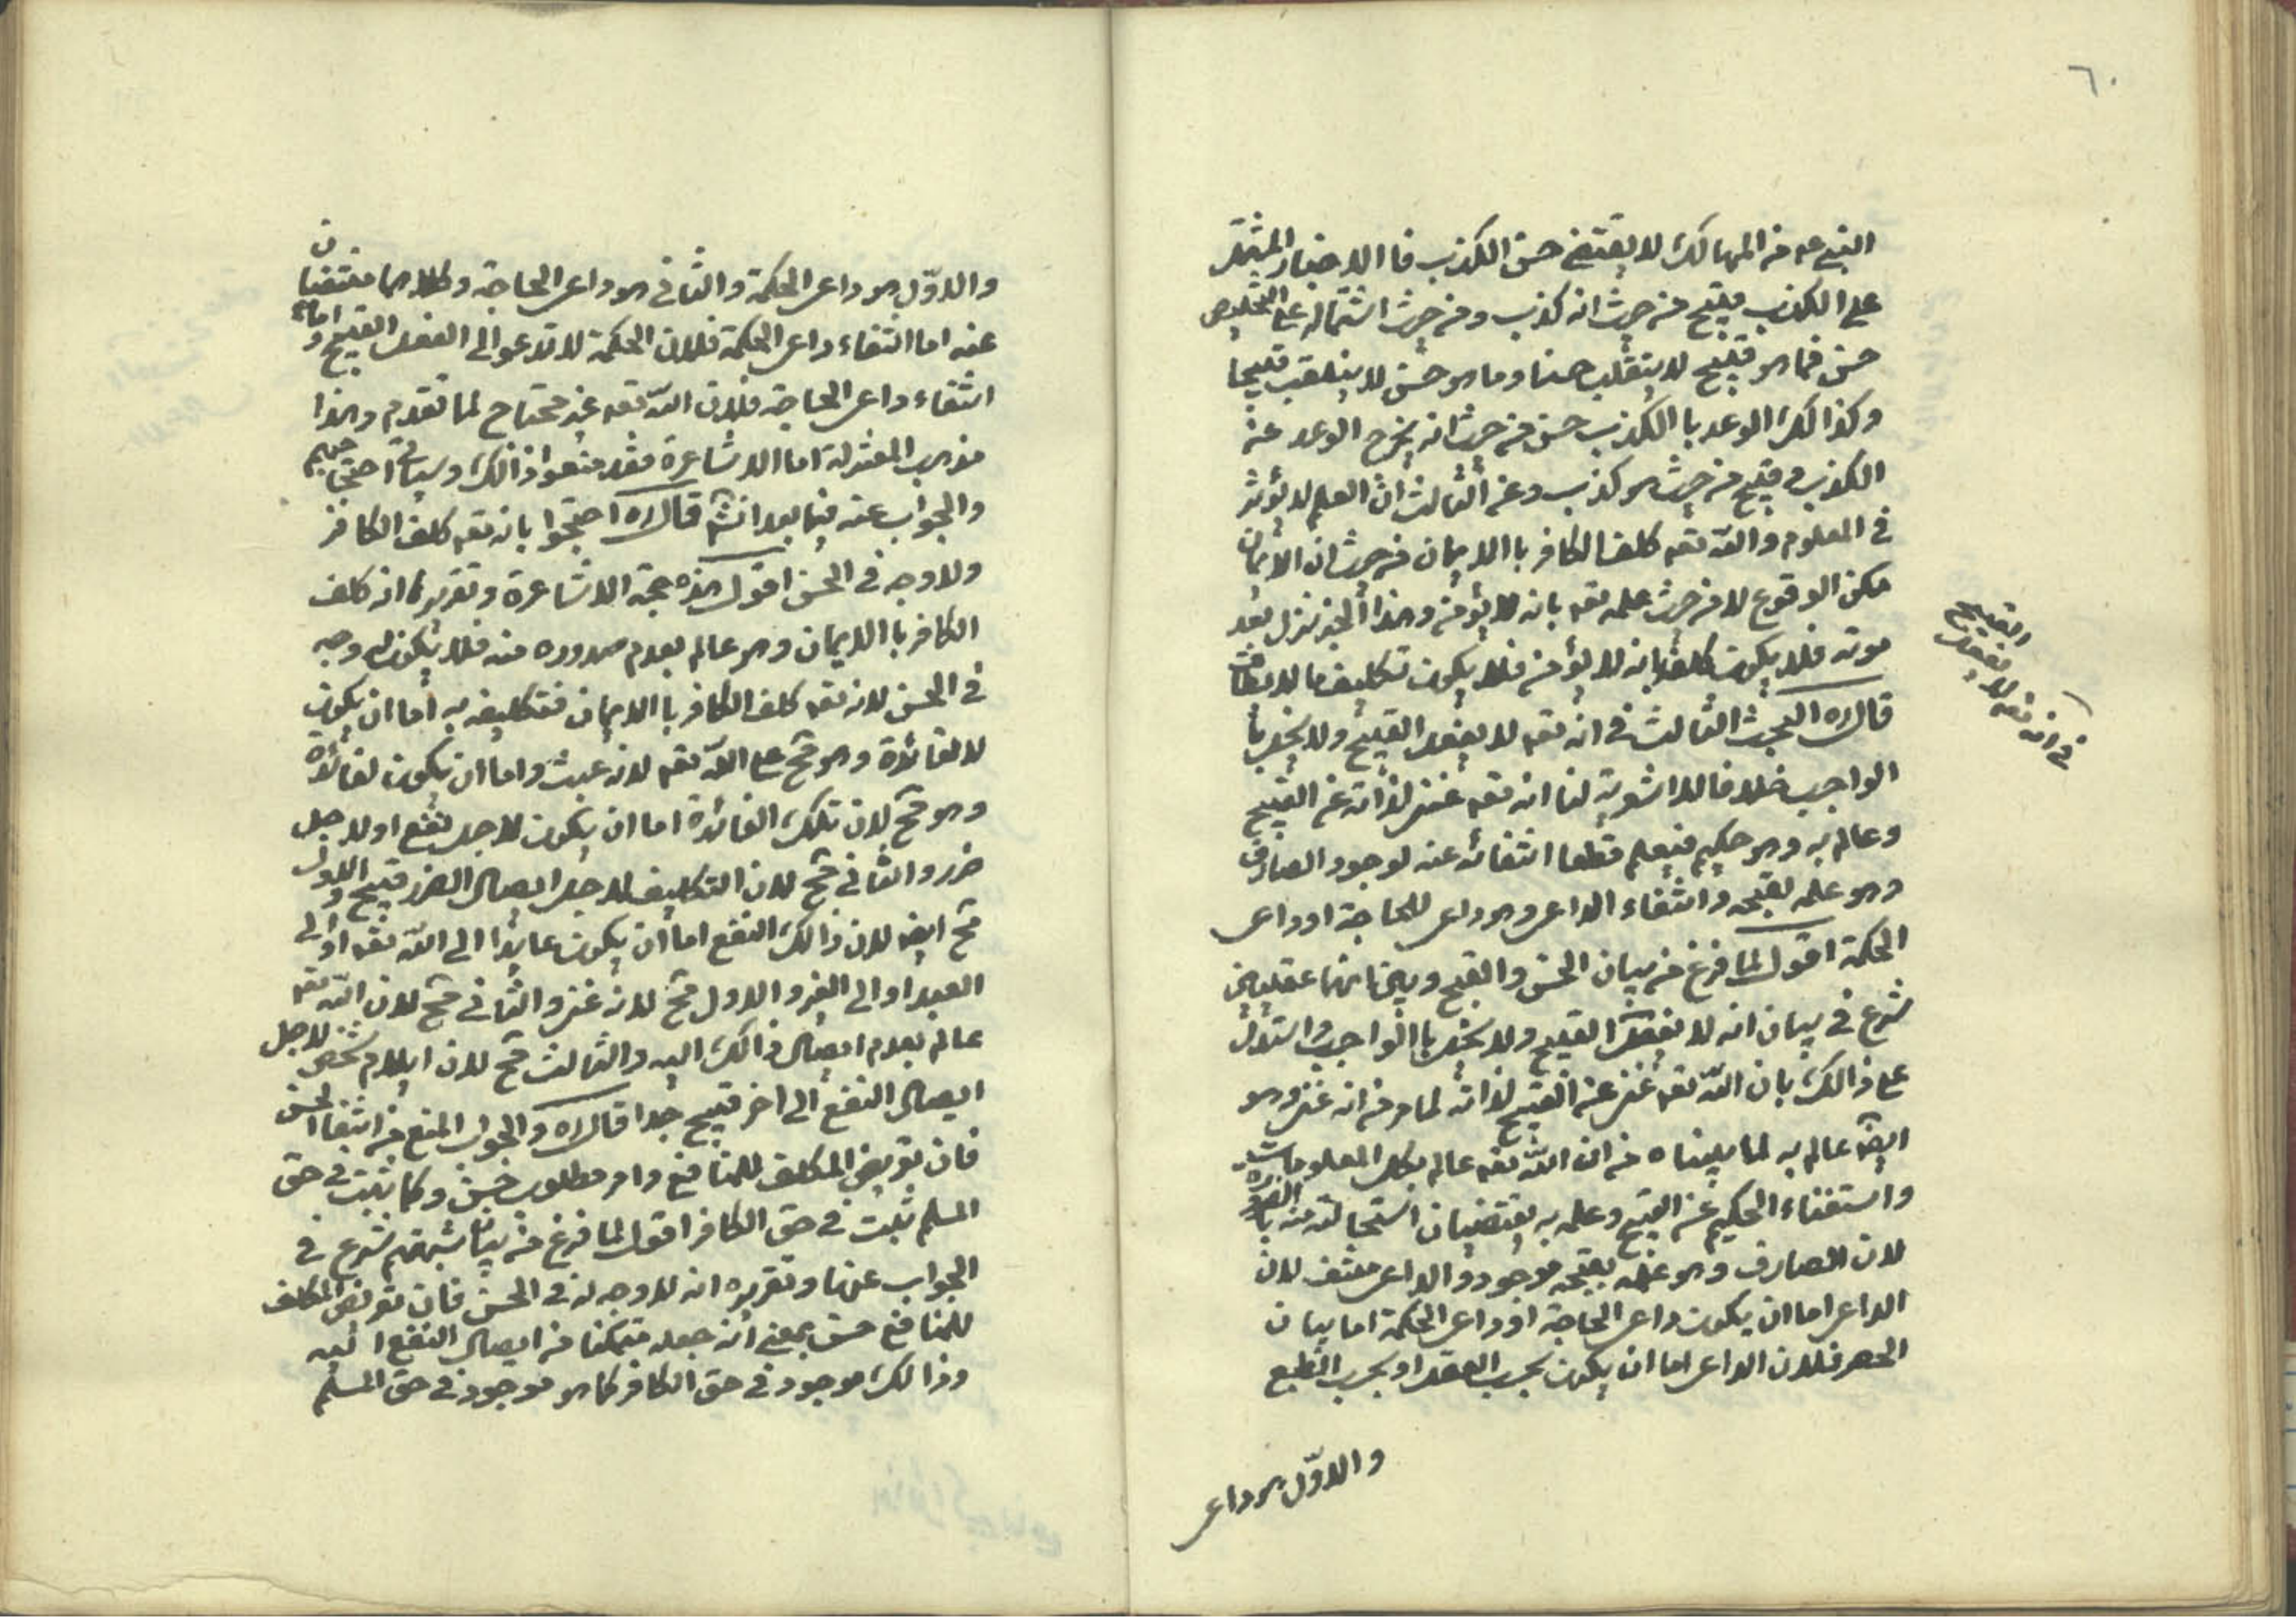 ٦٠
النبي عه من المهالك لا يقتضي حسن الكذب فا الاخبار المشتمل
على الكذب قبيح من حيث انه كذب ومن حيث اشتماله على التخليص
حسن فما هو قبيح لا ينقلب حسنا وما هو حسن لا ينقلب قبيحا
وكذالك الوعد با الكذب حسن من حيث انه يخرج الوعد عن
الكذب وقبيح من حيث هو كذب وعن الثالث ان العلم لا يؤثر
في المعلوم والله تعه كلف الكافر با الايمان من حيث ان الايمان
ممكن الوقوع لا من حيث علمه تعه بانه لا يؤمن وهذا الخبر نزل بعد
موته فلا يكون كلف بانه لا يؤمن فلا يكون تكليف ما لا يطاق
قال ره البحث الثالث في انه تعه لا يفعل القبيح ولا يخل با
الواجب خلافا للاشعرية لنا انه تعه غني لذاته عن القبيح
وعالم به وهو حكيم فيعلم قطعا انتفائه عنه لوجود الصارف
وهو علمه بقبحه وانتفاء الداعي وهو داعي للحاجة او داعي
الحكمة اقول لما فرغ من بيان الحسن والقبح وبيان انهما عقليين
شرع في بيان انه لا يفعل القبيح ولا يخل با الواجب واستدل
على ذالك بان الله تعه غني عن القبيح لذاته لما مر من انه غني وهو
ايضه عالم به لما بيناه من ان الله تعه عالم بكل المعلومات
واستغناء الحكيم عن القبيح وعلمه به يقتضيان استحالته منه با لضرورة
لان الصارف وهو علمه بقبحه موجود والداعي منتف لان
الداعي اما ان يكون داعي الحاجة او داعي الحكمة اما بيان
الحصر فلان الداعي اما ان يكون بحسب العقل او بحسب الطبع
والاوّل هو داعي
في انه تعه لا يفعل
القبيح
والاوّل هو داعي الحكمة والثاني هو داعي الحاجة وكلاهما منتفيان
عنه اما انتفاء داعي الحكمة فلان الحكمة لا تدعو الى الفعل القبيح و اما
انتفاء داعي الحاجة فلان الله تعه غير محتاج لما تقدم وهذا
مذهب المعتزلة اما الاشاعرة فقد منعوا ذالك وسياتي احتجاجهم
والجواب عنه فيما بعد انشه قال ره احتجوا بانه تعه كلف الكافر
ولا وجه في الحسن اقول هذه حجة الاشاعرة وتقريرها انه كلف
الكافر با الايمان وهو عالم بعدم صدوره منه فلا يكون له وجه
في الحسن لانه تعه كلف الكافر با الايمان فتكليفه به اما ان يكون
لا لفائدة وهو مح على الله تعه لانه عبث واما ان يكون لفائدة
وهو مح لان تلك الفائدة اما ان يكون لاجل نفع او لاجل
ضرر والثاني مح لان التكليف لاجل ايصال الضرر قبيح و الاول
مح ايضه لان ذالك النفع اما ان يكون عايدا الى الله تعه او الى
العبد او الى الغير والاول مح لانه غني والثاني مح لان الله تعه
عالم بعدم ايصال ذالك اليه والثالث مح لان ايلام شخص لاجل
ايصال النفع الى اخر قبيح جدا قال ره والجواب المنع من انتفاء الحسن
فان تعريض المكلف للمنافع وامر مطلوب حسن وكما يثبت في حق
المسلم ثبت في حق الكافر اقول لما فرغ من بيان شبهتهم شرع في
الجواب عنها وتقريره انه لا وجه له في الحسن فان تعريض المكلف
للمنافع حسن بمعنى انه جعله متمكنا من ايصال النفع اليه
وذالك موجود في حق الكافر كما هو موجود في حق المسلم